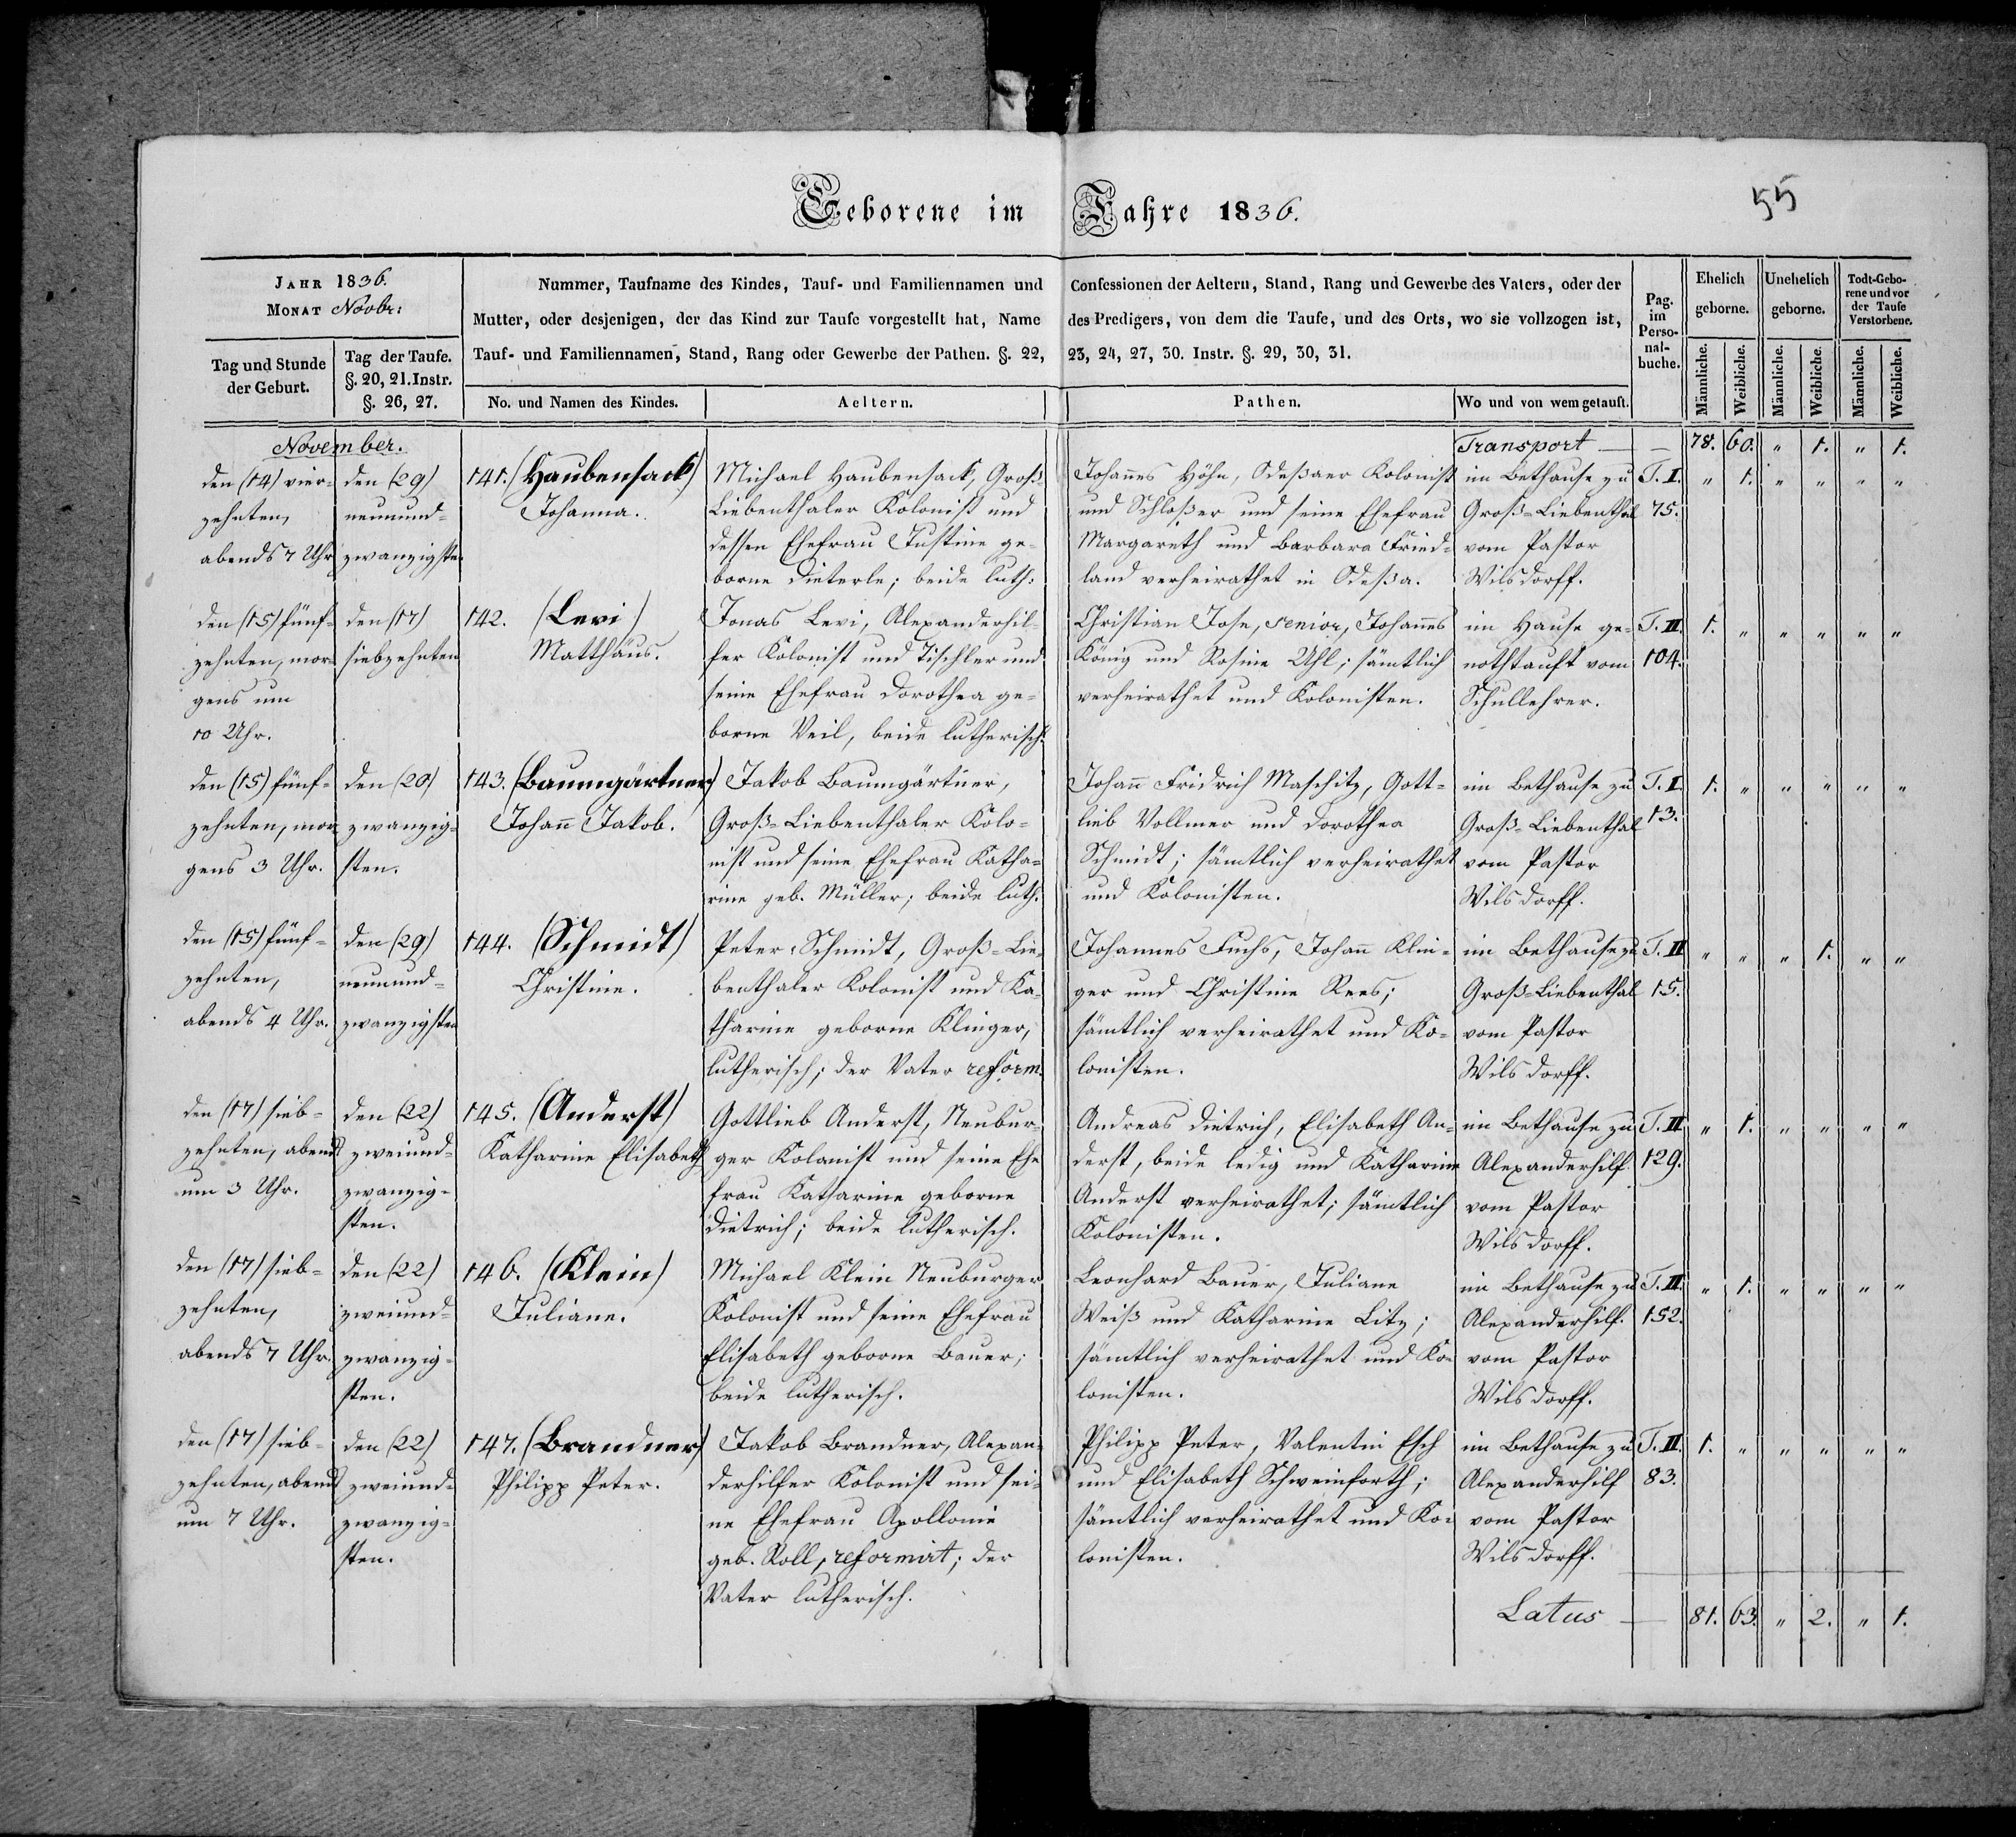 Geborene im Jahre 1836.
55
JAHR 1836.
MONAT Novbr:
Nummer, Taufname des Kindes, Tauf- und Familiennamen und
Mutter, oder desjenigen, der das Kind zur Taufe vorgestellt hat, Name
Tauf- und Familiennamen, Stand, Rang oder Gewerbe der Pathen. §. 22,
Confessionen der Aeltern, Stand, Rang und Gewerbe des Vaters, oder der
des Predigers, von dem die Taufe, und des Orts, wo sie vollzogen ist,
23, 24, 27, 30. Instr. §. 29, 30, 31.
Pag.
im
Perso-
nal-
buche.
Ehelich
geborne.
Unehelich
geborne.
Todt-Gebo-
rene und vor
der Taufe
Verstorbene.
Tag und Stunde
der Geburt.
Tag der Taufe.
§. 20, 21. Instr.
§. 26, 27.
No. und Namen des Kindes.
Aeltern.
Pathen.
Wo und von wem getauft.
Männliche.
Weibliche.
Männliche.
Weibliche.
Männliche.
Weibliche.
November.
Transport — — 78. 60. " 1. " 1.
den (14) vier-
zehnten,
abends 7 Uhr
den (29)
neunund-
zwanzigsten
141. (Haubensack)
Johanna.
Michael Haubensack, Groß-
Liebenthaler Kolonist und
dessen Ehefrau Justine ge-
borne Dieterle; beide luth:
Johanes Höhn, Odeßaer Kolonist
und Schloßer und seine Ehefrau
Margareth und Barbara Fried-
land verheirathet in Odeßa.
im Bethause zu
Groß-Liebenthal
vom Pastor
Wilsdorff.
T. I.
75.
" 1. " " " "
den (15) fünf-
zehnten, mor-
gens um
10 Uhr.
den (17)
siebzehnten
142. (Levi)
Matthäus.
Jonas Levi, Alexanderhil-
fer Kolonist und Tischler und
seine Ehefrau Dorothea ge-
borne Veil, beide lutherisch.
Christian Jose, senior, Johanes
König und Rosine Uhl; sämtlich
verheirathet und Kolonisten.
im Hause ge-
nothtauft vom
Schullehrer.
T. II.
104.
1. " " " " "
den (15) fünf-
zehnten, mor-
gens 3 Uhr.
den (20)
zwanzig-
sten.
143. (Baumgärtner)
Johan Jakob.
Jakob Baumgärtner,
Groß-Liebenthaler Kolo-
nist und seine Ehefrau Katha-
rine geb. Müller; beide luth.
Johan Fridrich Maschitz, Gott-
lieb Vollmer und Dorothea
Schmidt; sämtlich verheirathet
und Kolonisten.
im Bethause zu
Groß-Liebenthal
vom Pastor
Wilsdorff.
T. I.
13.
1. " " " " "
den (15) fünf-
zehnten,
abends 4 Uhr.
den (29)
neunund-
zwanzigsten
144. (Schmidt)
Christine.
Peter Schmidt, Groß-Lie-
benthaler Kolonist und Ka-
tharine geborne Klinger,
lutherisch; der Vater reform.
Johannes Fuchs, Johan Klin-
ger und Christine Rees;
sämtlich verheirathet und Ko-
lonisten.
im Bethause zu
Groß-Liebenthal
vom Pastor
Wilsdorff.
T. II
15.
" " " 1. " "
den (17) sieb-
zehnten, abends
um 3 Uhr.
den (22)
zweiund-
zwanzig-
sten.
145. (Anderst)
Katharine Elisabeth
Gottlieb Anderst, Neubur-
ger Kolonist und seine Ehe
frau Katharine geborne
Dietrich; beide lutherisch.
Andreas Dietrich, Elisabeth An-
derst, beide ledig und Katharine
Anderst verheirathet; sämtlich
Kolonisten.
im Bethause zu
Alexanderhilf
vom Pastor
Wilsdorff.
T. II
129.
" 1. " " " "
den (17) sieb-
zehnten,
abends 7 Uhr.
den (22)
zweiund-
zwanzig-
sten.
146. (Klein)
Juliane.
Michael Klein Neuburger
Kolonist und seine Ehefrau
Elisabeth geborne Bauer;
beide lutherisch.
Leonhard Bauer, Juliane
Weiß und Katharine Litz;
sämtlich verheirathet und Ko-
lonisten.
im Bethause zu
Alexanderhilf.
vom Pastor
Wilsdorff.
T. II.
152.
" 1. " " " "
den (17) sieb-
zehnten, abends
um 7 Uhr.
den (22)
zweiund-
zwanzig-
sten.
147. (Brandner)
Philipp Peter.
Jakob Brandner, Alexan-
derhilfer Kolonist und sei-
ne Ehefrau Apollonie
geb. Roll, reformirt; der
Vater lutherisch.
Philipp Peter, Valentin Esch
und Elisabeth Schweinforth;
sämtlich verheirathet und Ko-
lonisten.
im Bethause zu
Alexanderhilf
vom Pastor
Wilsdorff.
T. II.
83.
1. " " " " "
Latus — 81. 63. " 2. " 1.